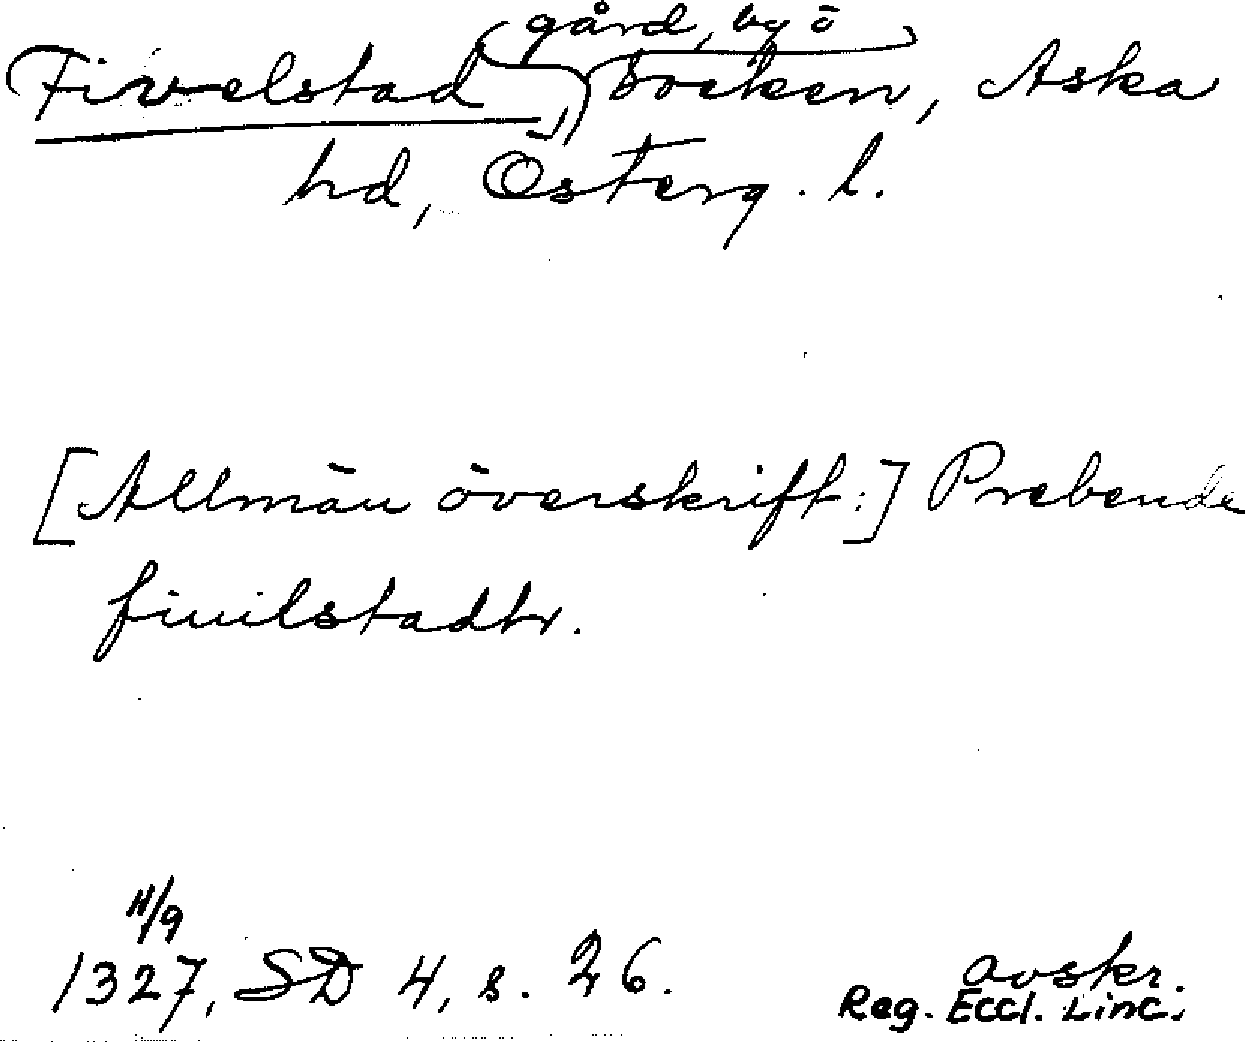 gård, by ö
Fivelstad, socken, Aska
hd, Österg. l.
[Allmän överskrift:] Prebende
fiuilstadhr.
11/9
1327, SD 4, s. 26.
avskr.
Reg. Eccl. Linc.